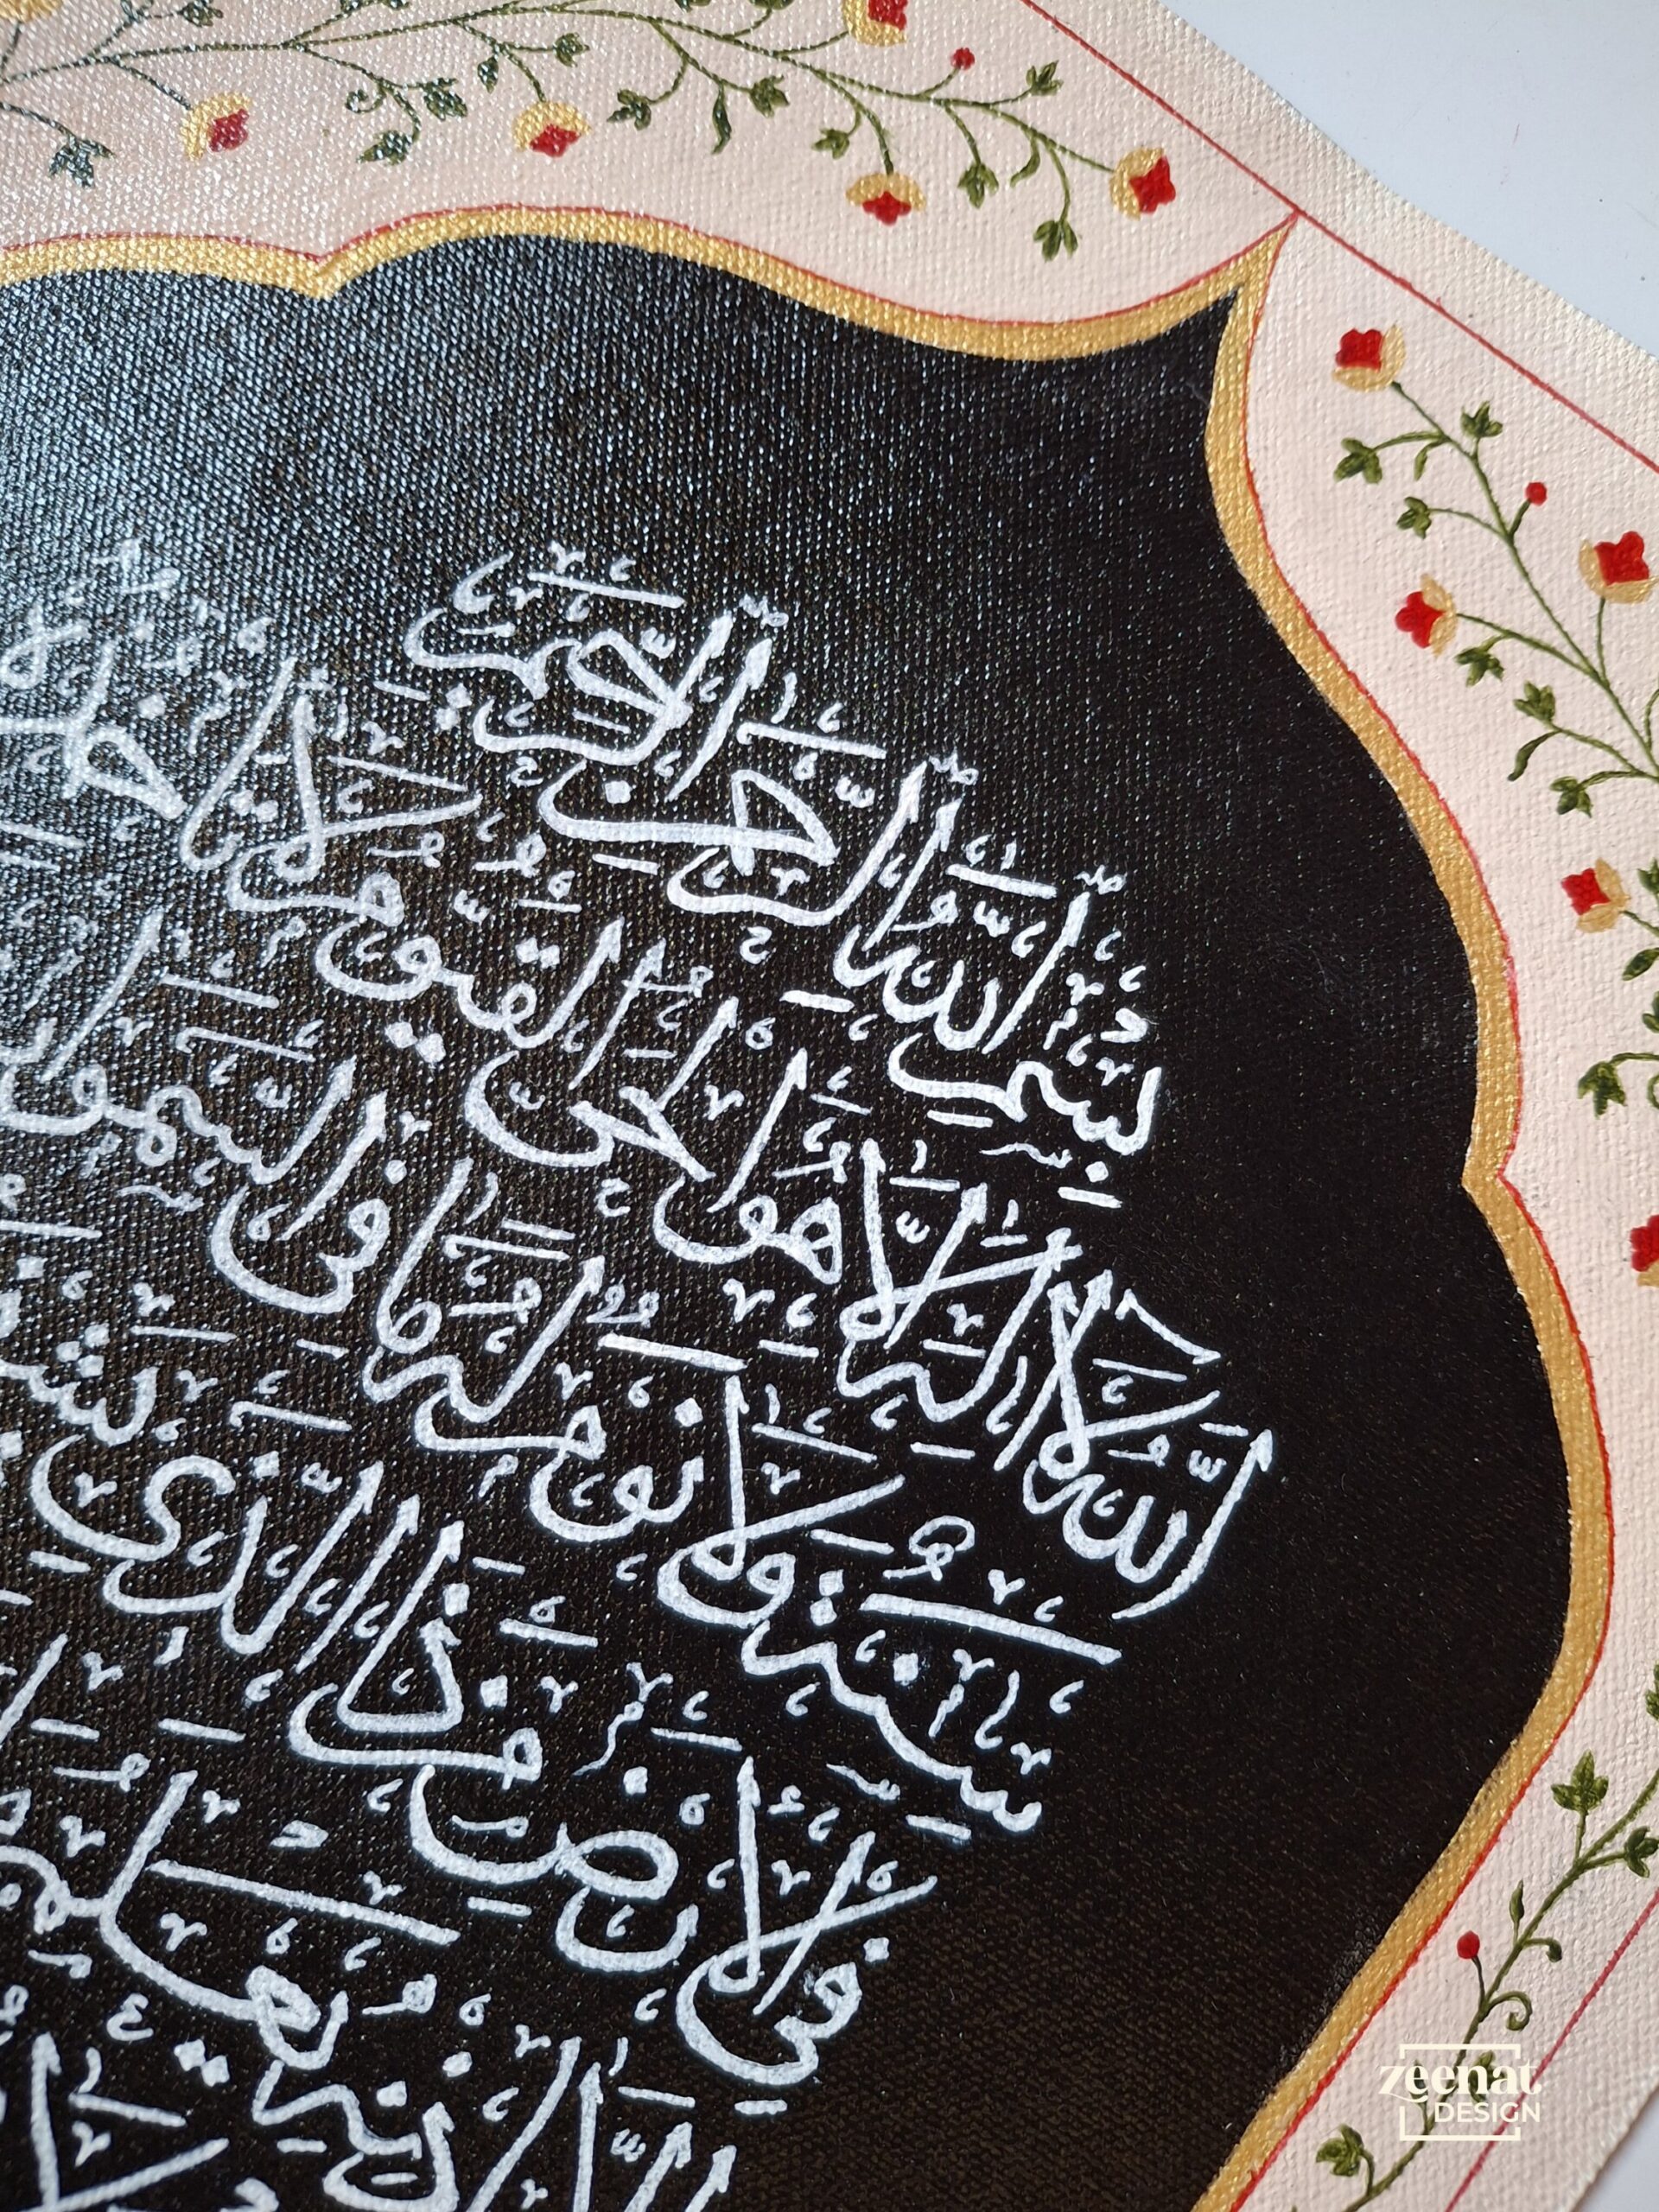 بِسْمِ اللهِ الرَّحْمٰنِ الرَّحِيْمِ
اَللهُ لَا اِلٰهَ اِلَّا هُوَ الْحَيُّ الْقَيُّوْمُ لَا تَاْخُذُهٗ
سِنَةٌ وَّلَا نَوْمٌ لَهٗ مَا فِى السَّمٰوٰتِ
فِى الْاَرْضِ مَنْ ذَا الَّذِيْ
اِلَّا بِاِذْنِهٖ يَعْلَمُ
zeenat.
DESIGN